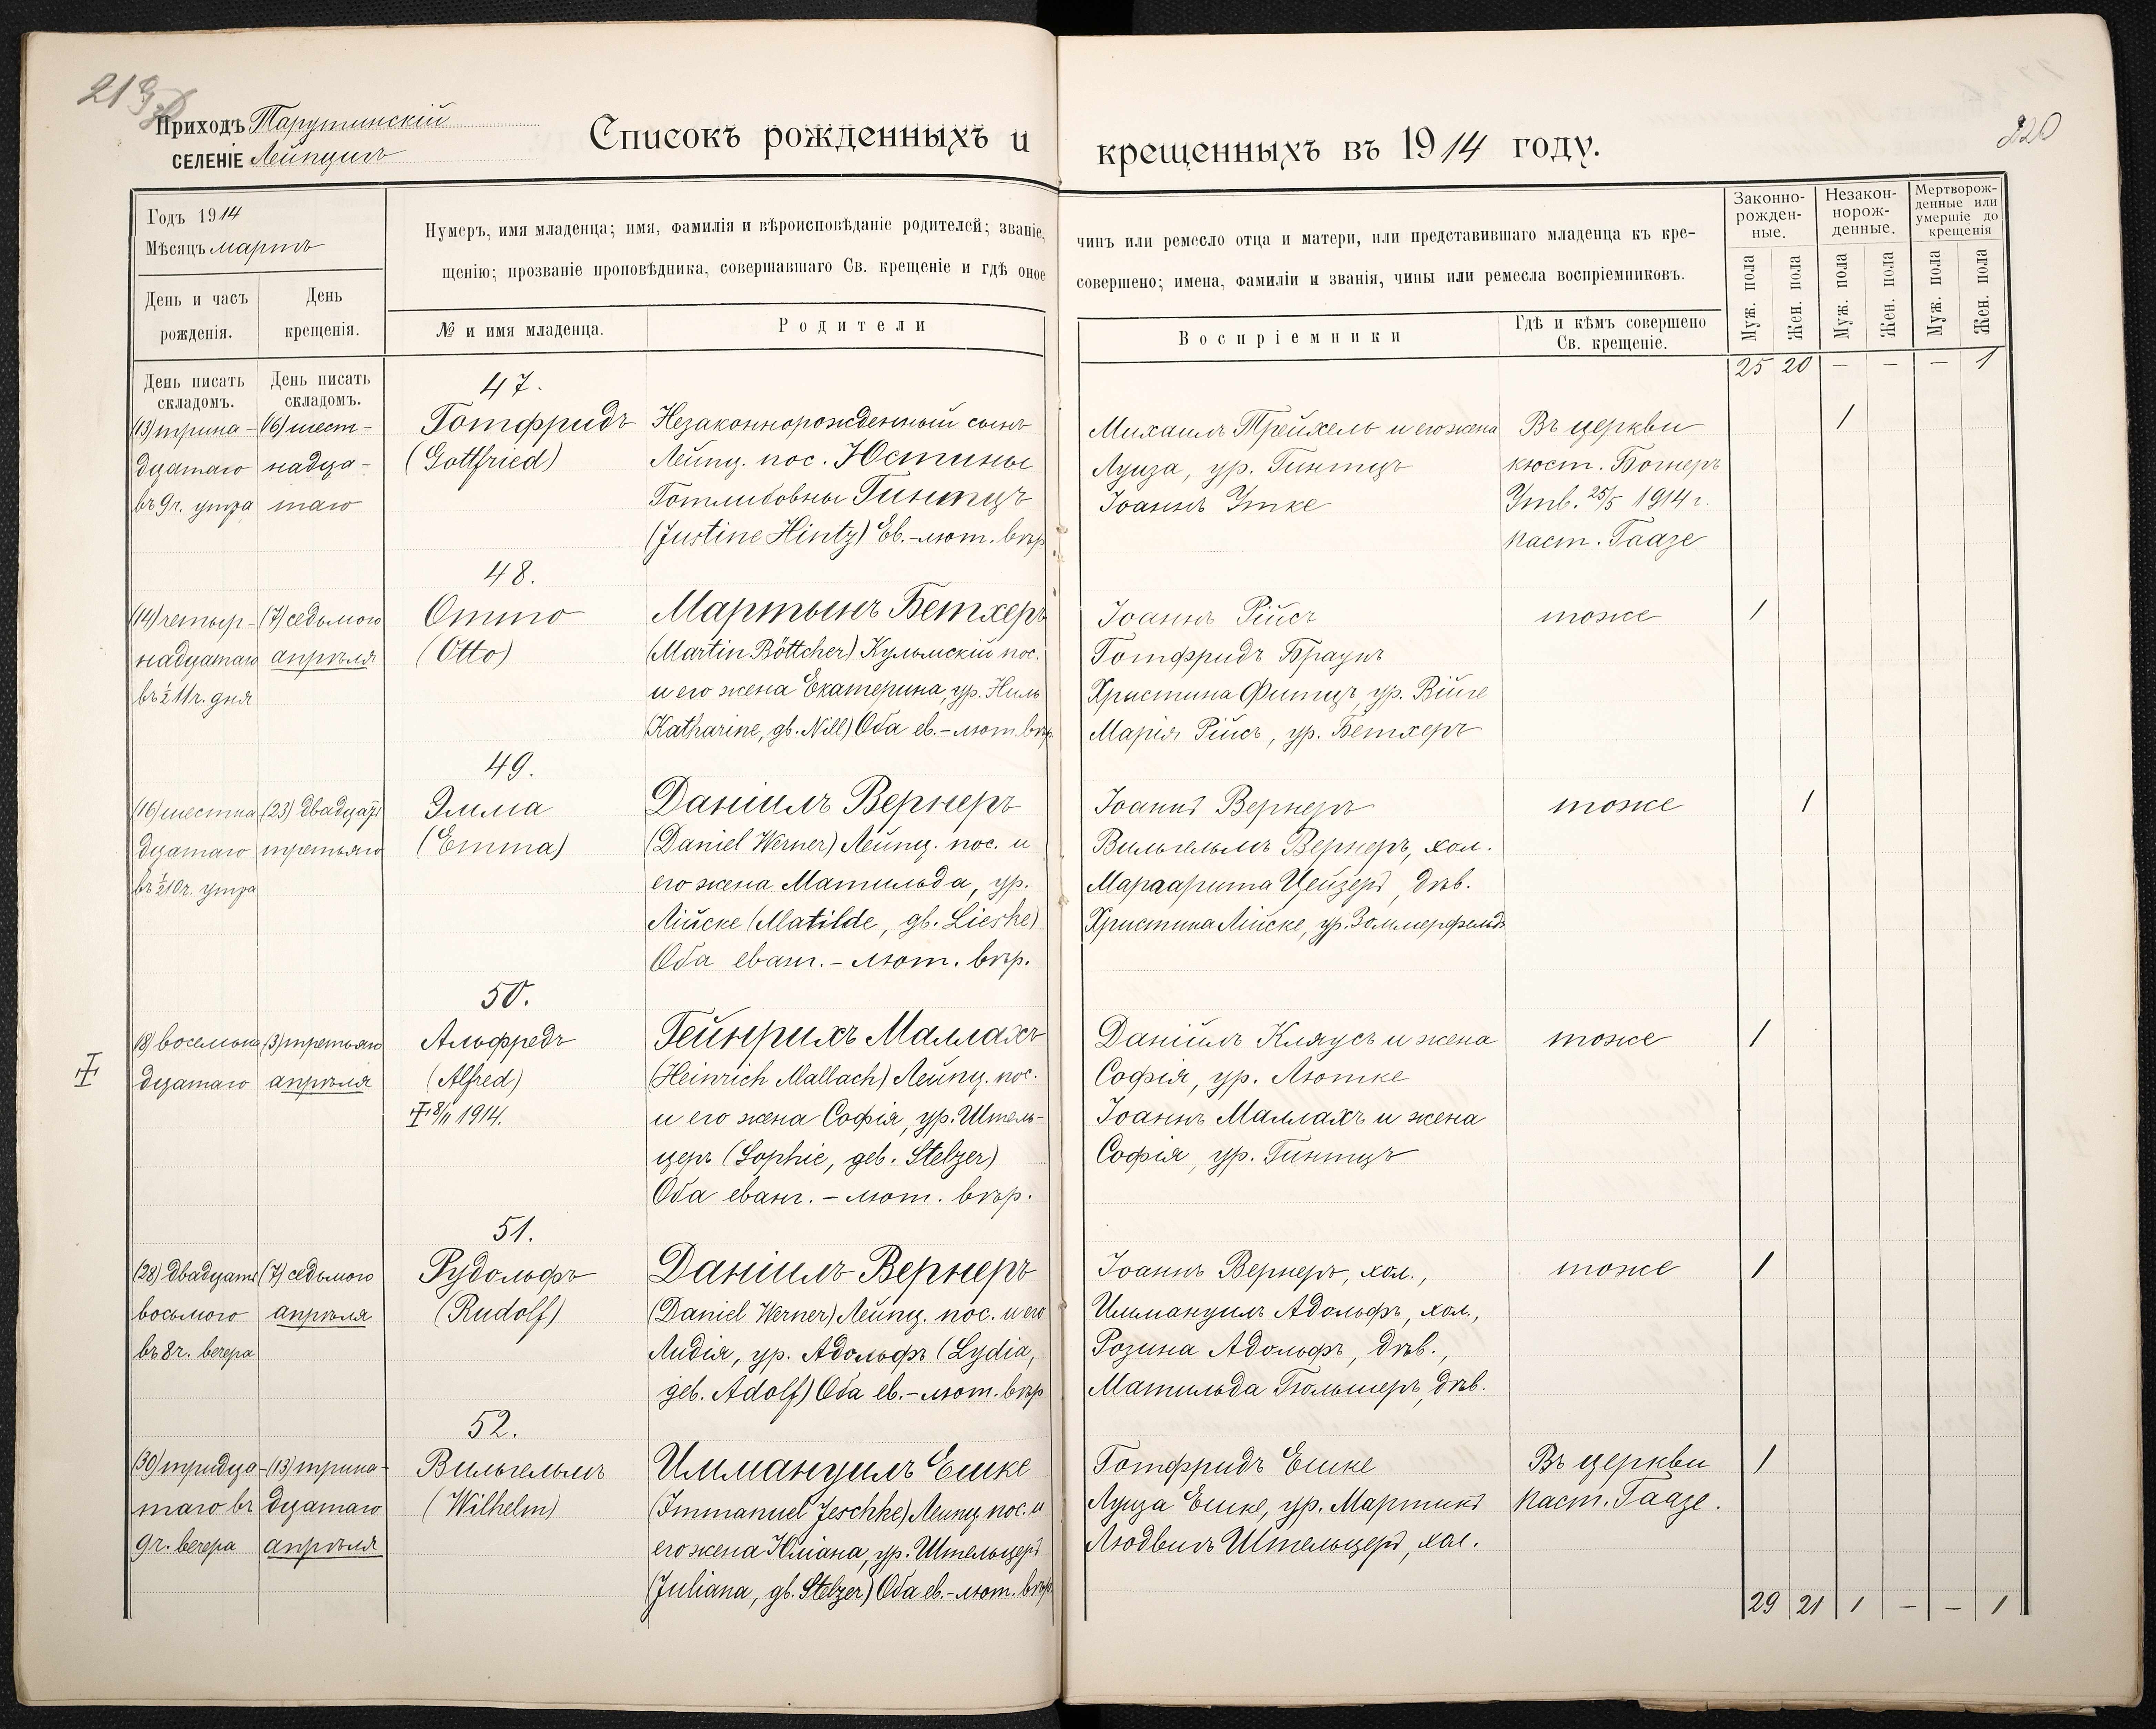 219
220
Приходъ Тарутинскій
СЕЛЕНІЕ Лейпцигъ
Списокъ рожденныхъ и крещенныхъ въ 1914 году.
Годъ 1914
Мѣсяцъ мартъ
День и часъ рожденія.
День крещенія.
Нумеръ, имя младенца; имя, фамилія и вѣроисповѣданіе родителей; званіе, чинъ или ремесло отца и матери, или представившаго младенца къ кре-
щенію; прозваніе проповѣдника, совершавшаго Св. крещеніе и гдѣ оное совершено; имена, фамиліи и званія, чины или ремесла воспріемниковъ.
№ и имя младенца.
Родители
Воспріемники
Гдѣ и кѣмъ совершено
Св. крещеніе.
Законно-
рожден-
ные.
Незакон-
норож-
денные.
Мертворож-
денные или
умершіе до
крещенія
Муж. пола
Жен. пола
Муж. пола
Жен. пола
Муж. пола
Жен. пола
25 20 — — — 1
День писать
складомъ.
День писать
складомъ.
(13) трина-
дцатаго
въ 9 ч. утра
(16) шест-
надца-
таго
47.
Готфридъ
(Gottfried)
Незаконнорожденный сынъ
Лейпц. пос. Юстины
Готлибовны Гинтцъ
(Justine Hintz) Ев.-лют. вѣр
Михаилъ Трейхель и его жена
Луиза, ур. Гинтцъ
Іоаннъ Утке
Въ церкви
кюст. Богнеръ
Утв. 25/5 1914 г.
паст. Гаазе
1
(14) четыр-
надцатаго
въ ½ 11 ч. дня
(7) седьмого
апрѣля
48.
Отто
(Otto)
Мартынъ Бетхеръ
(Martin Böttcher) Кульмскій пос.
и его жена Екатерина, ур. Нилъ
(Katharine, gb. Nill) Оба ев.-лют. вѣр
Іоаннъ Рійсъ
Готфридъ Браунъ
Христина Фитцъ, ур. Війге
Марія Рійсъ, ур. Бетхеръ
тоже
1
(16) шестна
дцатаго
въ ½10 ч. утра
(23) двадцать
третьяго
49.
Эмма
(Emma)
Даніилъ Вернеръ
(Daniel Werner) Лейпц. пос. и
его жена Матильда, ур.
Лійске (Matilde, gb. Lieske)
Оба еванг.-лют. вѣр.
Іоаннъ Вернеръ
Вильгельмъ Вернеръ, хол.
Маргарита Цейзеръ, дѣв.
Христина Лійске, ур. Зоммерфельдъ
тоже
1
(18) восемьна
дцатаго
(3) третьяго
апрѣля
50.
Альфредъ
(Alfred)
18/11 1914.
Гейнрихъ Маллахъ
(Heinrich Mallach) Лейпц. пос.
и его жена Софія, ур. Штель-
церъ (Sophie, geb. Stelzer)
Оба еванг.-лют. вѣр.
Даніилъ Клаусъ и жена
Софія, ур. Лютке
Іоаннъ Маллахъ и жена
Софія, ур. Гинтцъ
тоже
1
(28) двадцать
восьмого
въ 8 ч. вечера
(7) седьмого
апрѣля
51.
Рудольфъ
(Rudolf)
Даніилъ Вернеръ
(Daniel Werner) Лейпц. пос. и его
Лидія, ур. Адольфъ (Lydia,
geb. Adolf) Оба ев.-лют. вѣр
Іоаннъ Вернеръ, хол.,
Иммануилъ Адольфъ, хол.,
Розина Адольфъ, дѣв.,
Матильда дѣв.
тоже
1
(30) тридца-
таго въ
9 ч. вечера
(13) трина-
дцатаго
апрѣля
52.
Вильгельмъ
(Wilhelm)
Иммануилъ Ешке
(Immanuel Jeschke) Лейпц. пос. и
его жена Юліана, ур. Штельцеръ
(Juliana, gb. Stelzer) Оба ев.-лют. вѣр
Готфридъ Ешке
Луиза Ешке, ур. Мартинъ
Людвигъ Штельцеръ, хол.
Въ церкви
паст. Гаазе.
1
29 21 1 — — 1